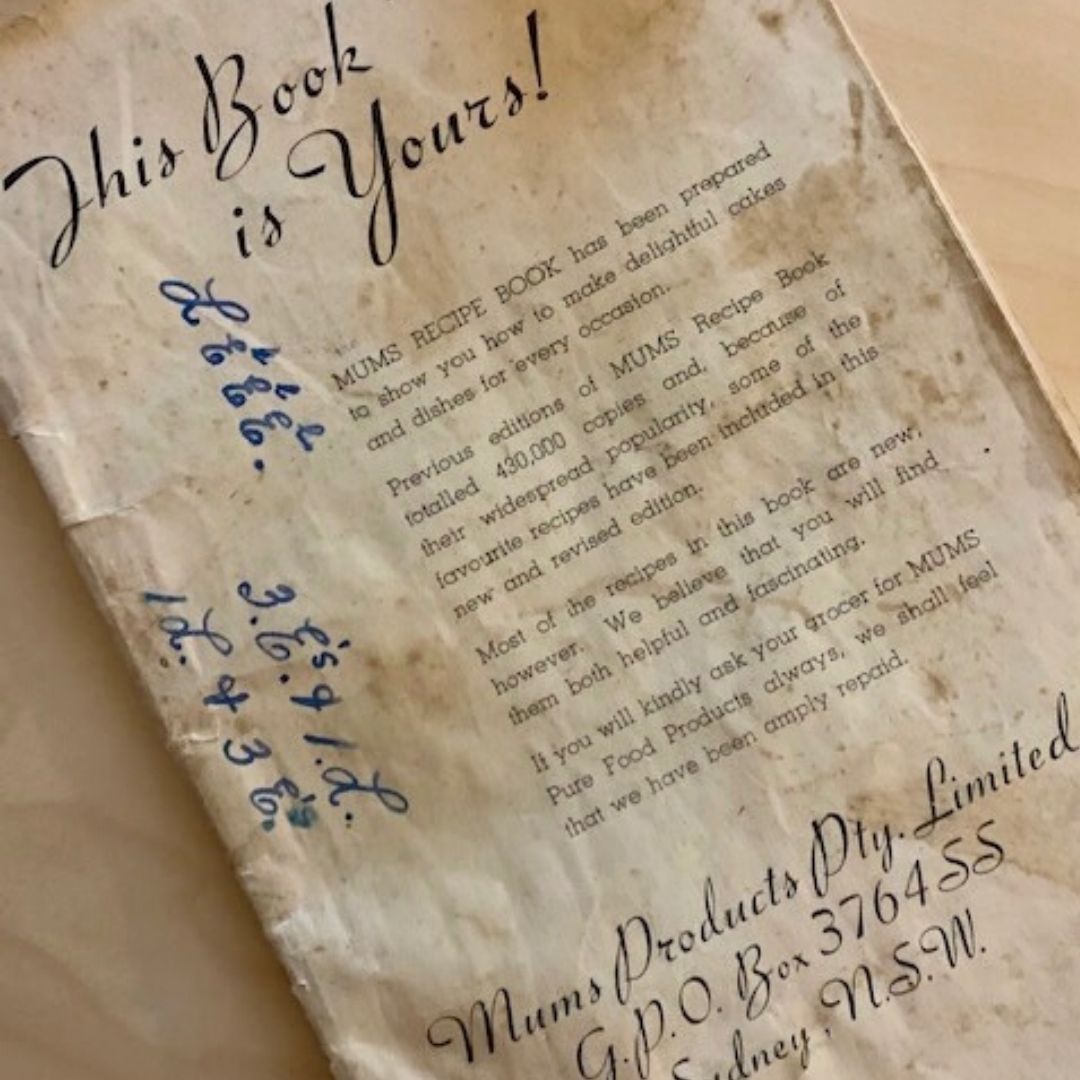 This Book
is Yours!
MUMS RECIPE BOOK has been prepared
to show you how to make delightful cakes
and dishes for every occasion.
Previous editions of MUMS Recipe Book
totalled 430,000 copies and, because of
their widespread popularity, some of the
favourite recipes have been included in this
new and revised edition.
Most of the recipes in this book are new,
however. We believe that you will find
them both helpful and fascinating.
If you will kindly ask your grocer for MUMS
Pure Food Products always, we shall feel
that we have been amply repaid.
Mums Products Pty. Limited
G.P.O. Box 3764SS
Sydney, N.S.W.